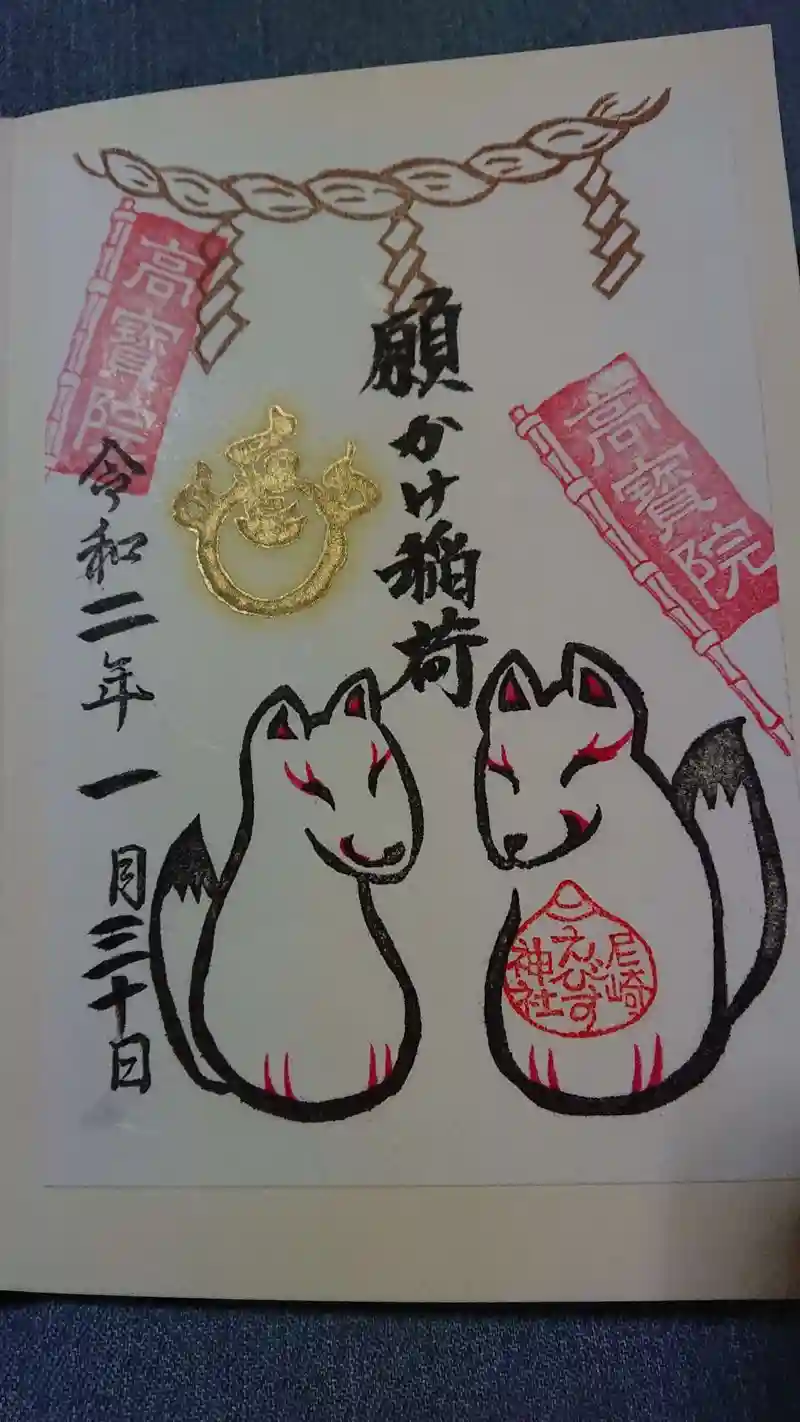 高寳院
願かけ稲荷
高寳院
令和二年一月三十日
尼崎
えびす
神社